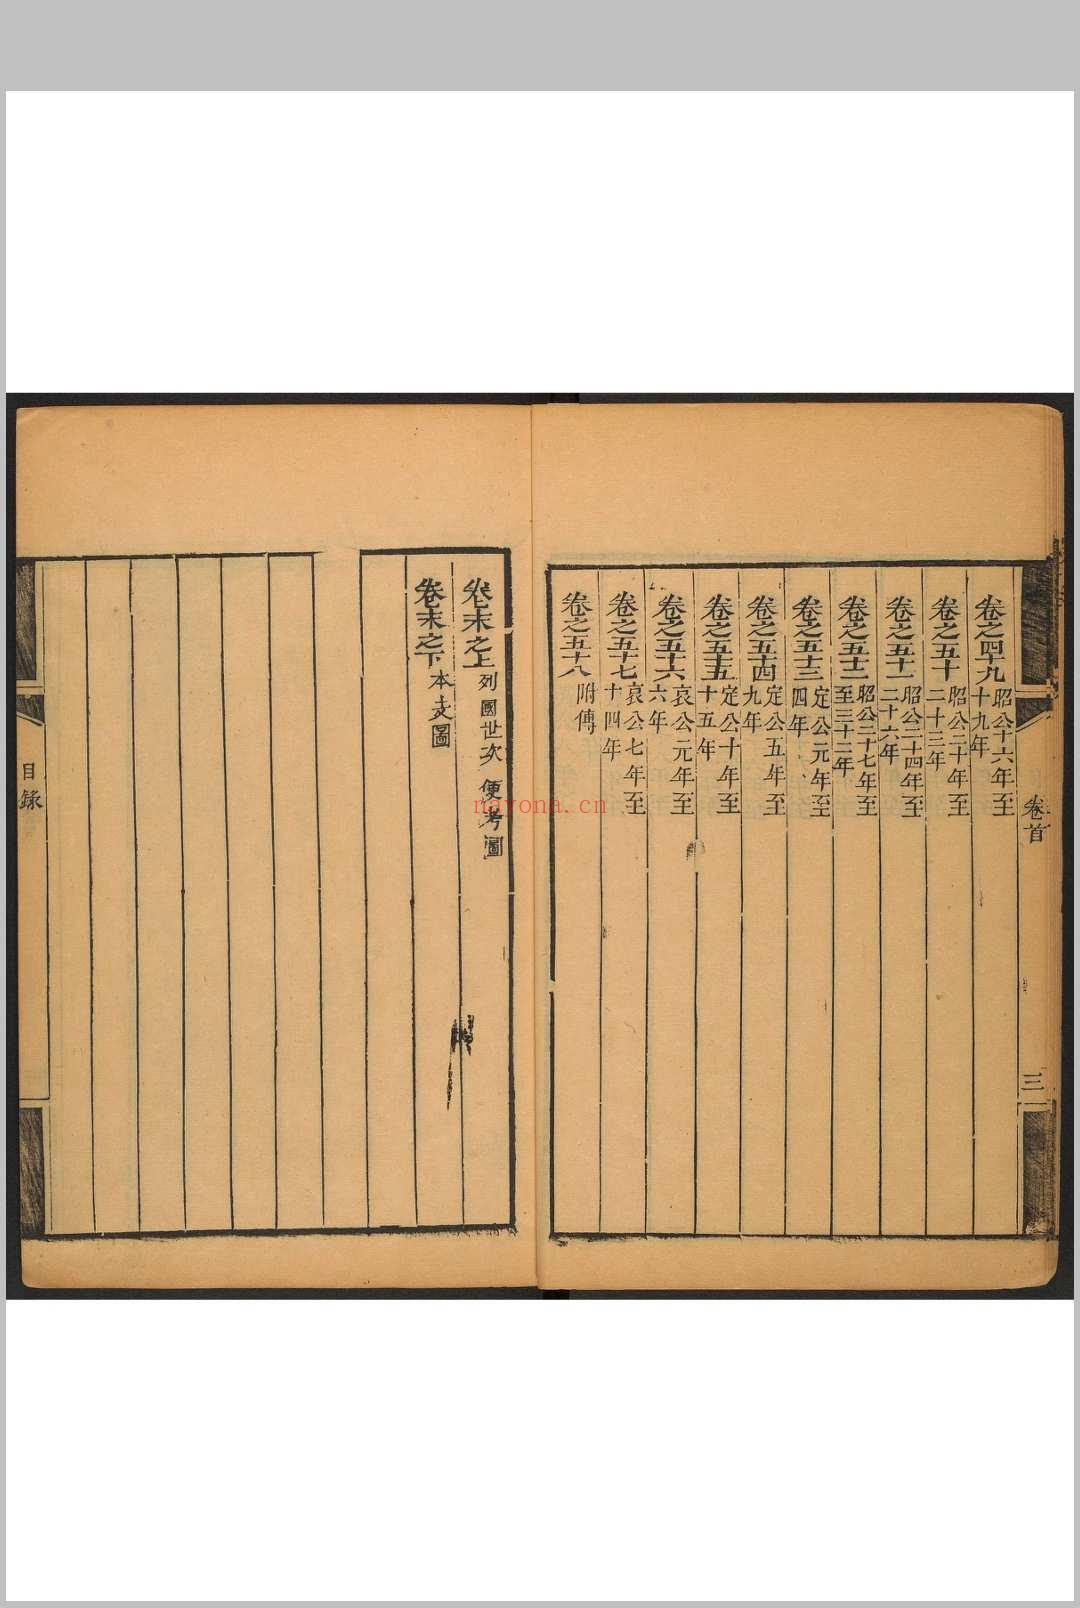 卷首
三
卷之四十九 昭公十六年至十九年
卷之五十 昭公二十年至二十三年
卷之五十一 昭公二十四年至二十六年
卷之五十二 昭公二十七年至三十二年
卷之五十三 定公元年至四年
卷之五十四 定公五年至九年
卷之五十五 定公十年至十五年
卷之五十六 哀公元年至六年
卷之五十七 哀公七年至十四年
卷之五十八 附傳
卷末之上 列國世次 便考圖
卷末之下 本支圖
目錄
nayona.cn